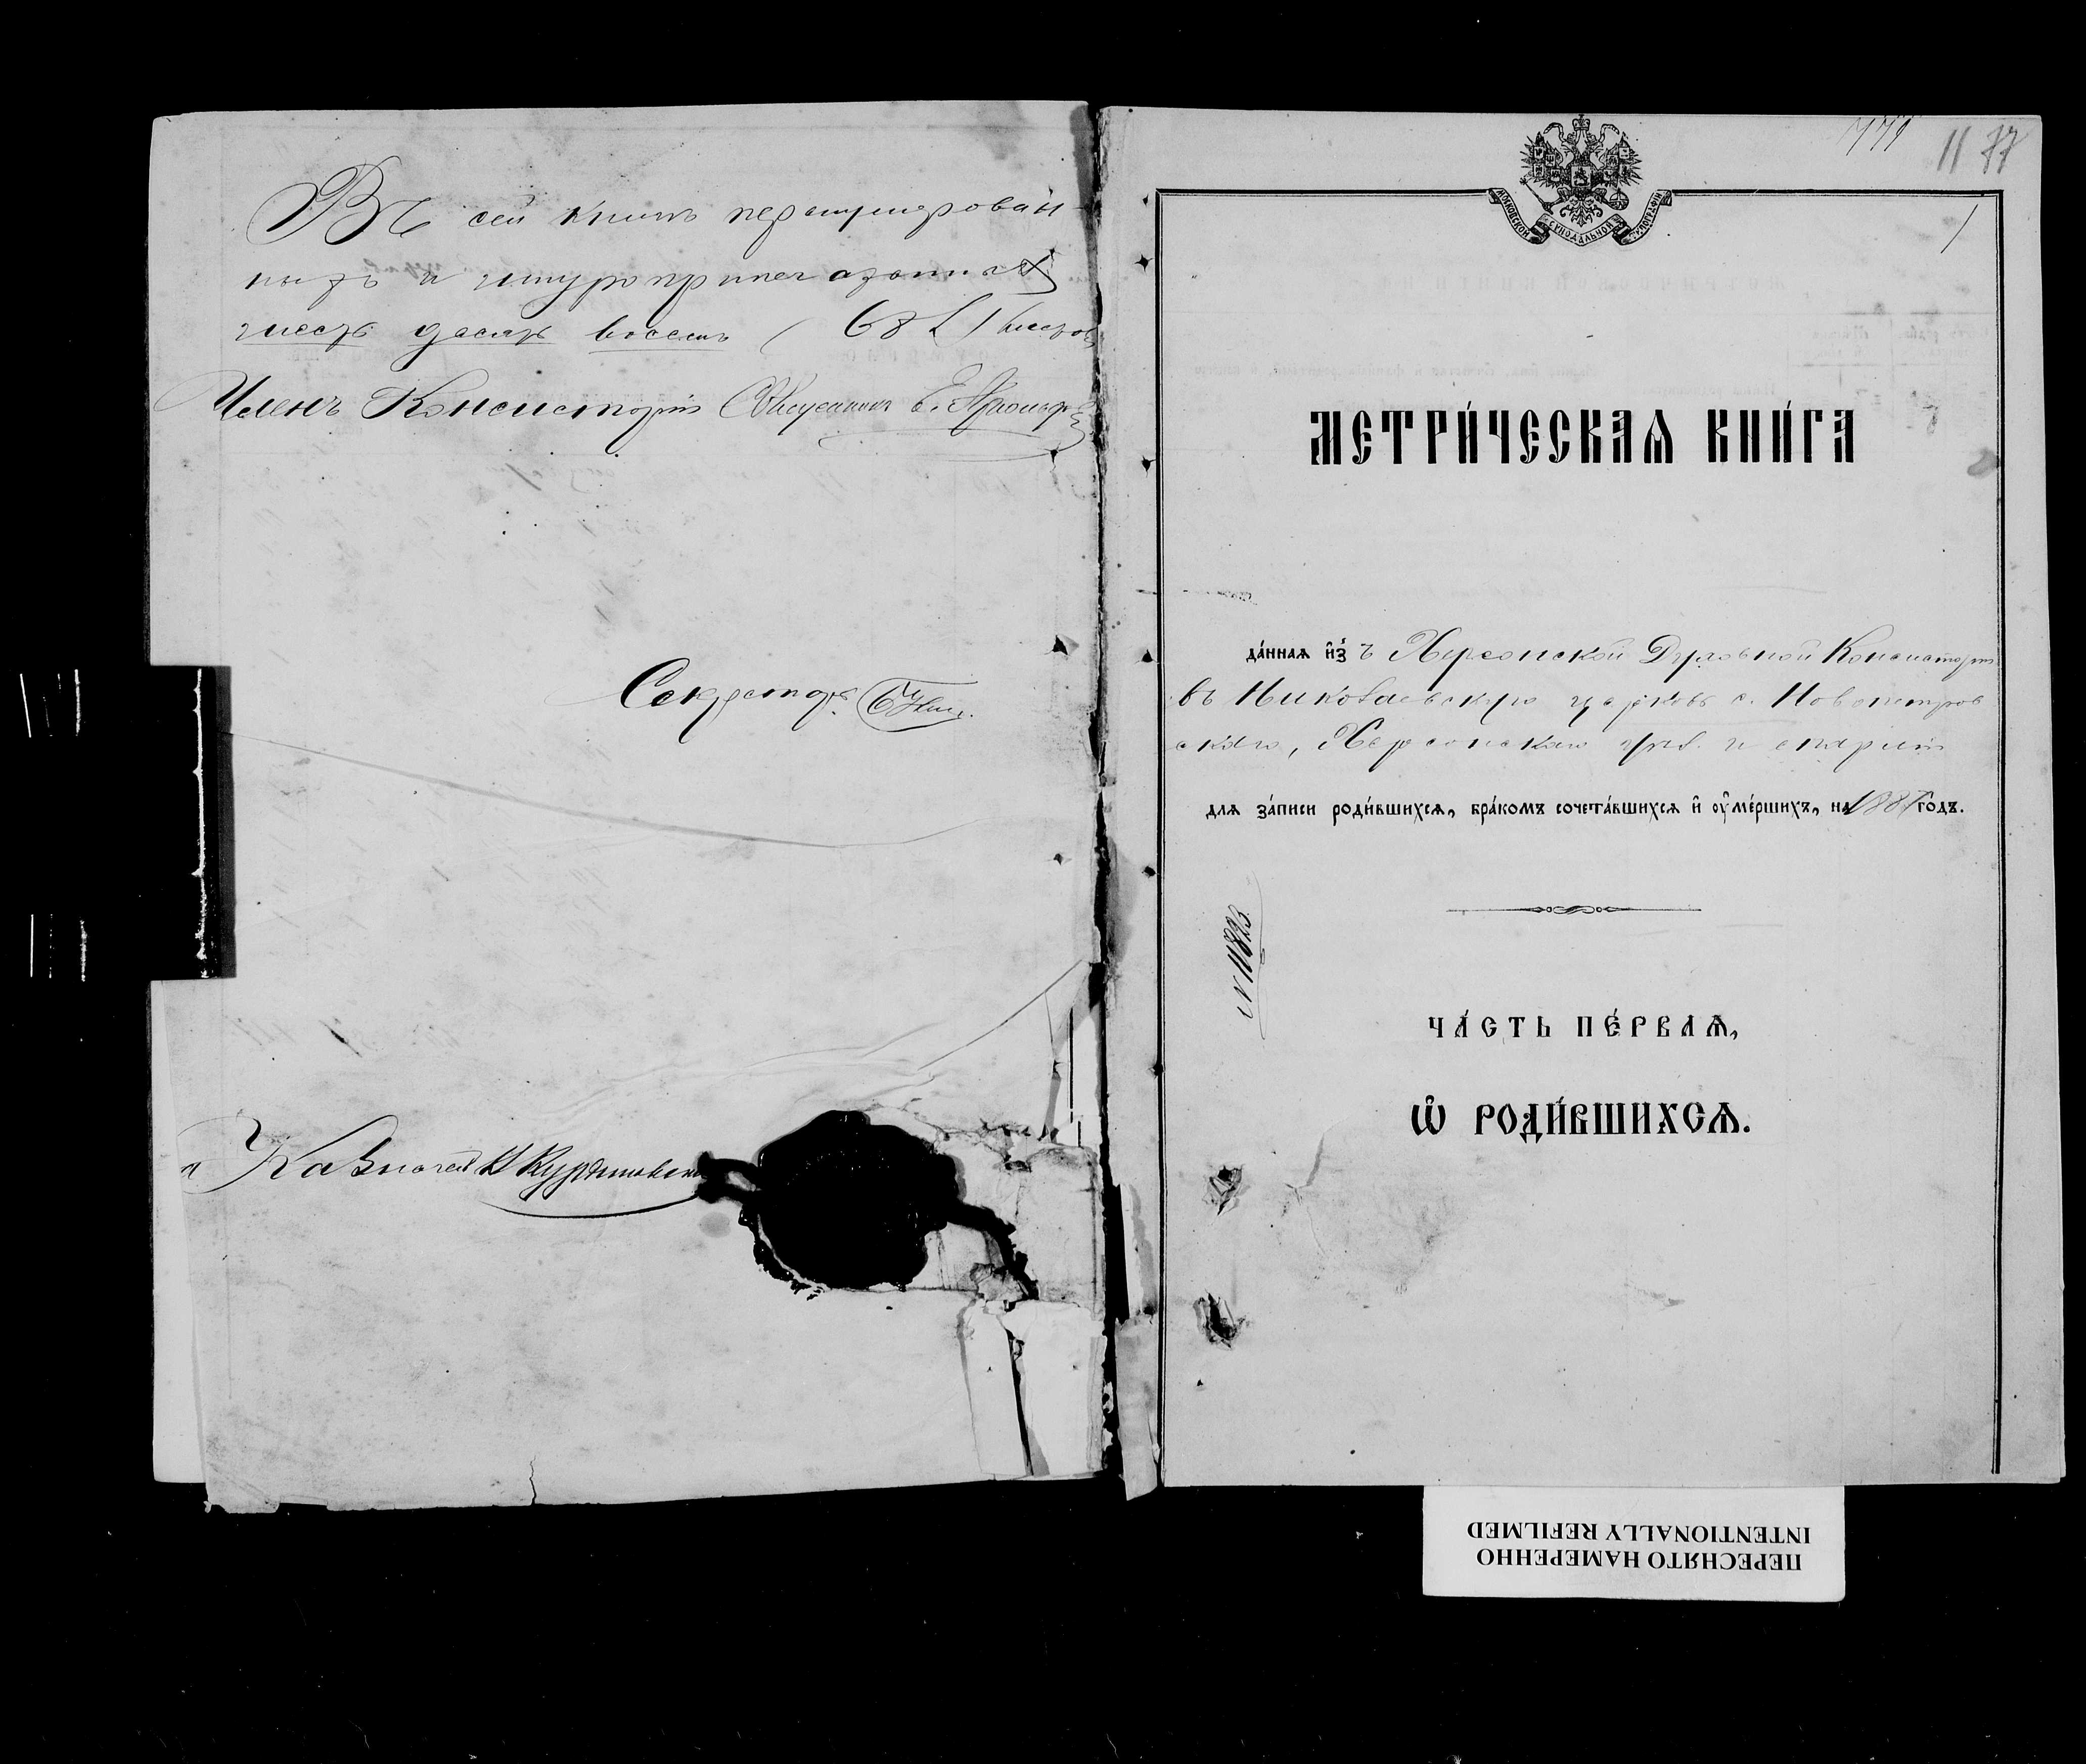 Въ сей книгѣ перенумерован-
ныхъ и шнуроприпечатанныхъ
шестьдесятъ восемь (68) листовъ
Членъ Консисторіи
Секретарь
Казначей
11 77
1
МОСКОВСКОЙ СѴНОДАЛЬНОЙ ТИПОГРАФІИ
МЕТРИ́ЧЕСКАѦ КНИ́ГА
да́ннаѧ и҆́з ъ Херсонской Духовной Консисторіи
въ Николаевскую церковь с. Новопетров
скаго, Херсонской губ. и епархіи
для за́писи роди́вшихсѧ, бра́комъ сочета́вшихсѧ и҆ оу҆ме́ршихъ, на 1887 го́дъ.
N 11823
ЧА́СТЬ ПЕ́РВАѦ,
Ѡ҆ РОДИ́ВШИХСѦ.
ПЕРЕСНЯТО НАМЕРЕННО
INTENTIONALLY REFILMED